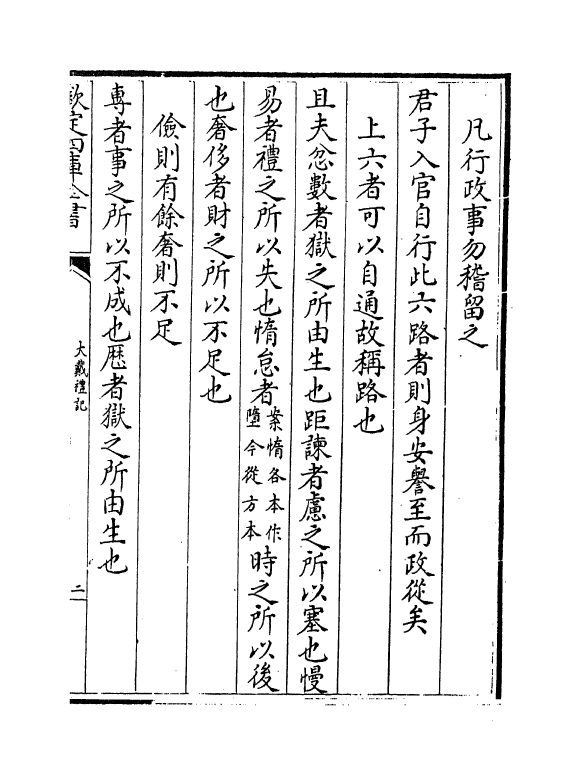 凡行政事勿稽留之
君子入官自行此六路者則身安譽至而政從矣
上六者可以自通故稱路也
且夫忿數者獄之所由生也距諫者慮之所以塞也慢
易者禮之所以失也惰怠者案惰各本作墮今從方本時之所以後
也奢侈者財之所以不足也
儉則有餘奢則不足
專者事之所以不成也歷者獄之所由生也
欽定四庫全書
大戴禮記
二